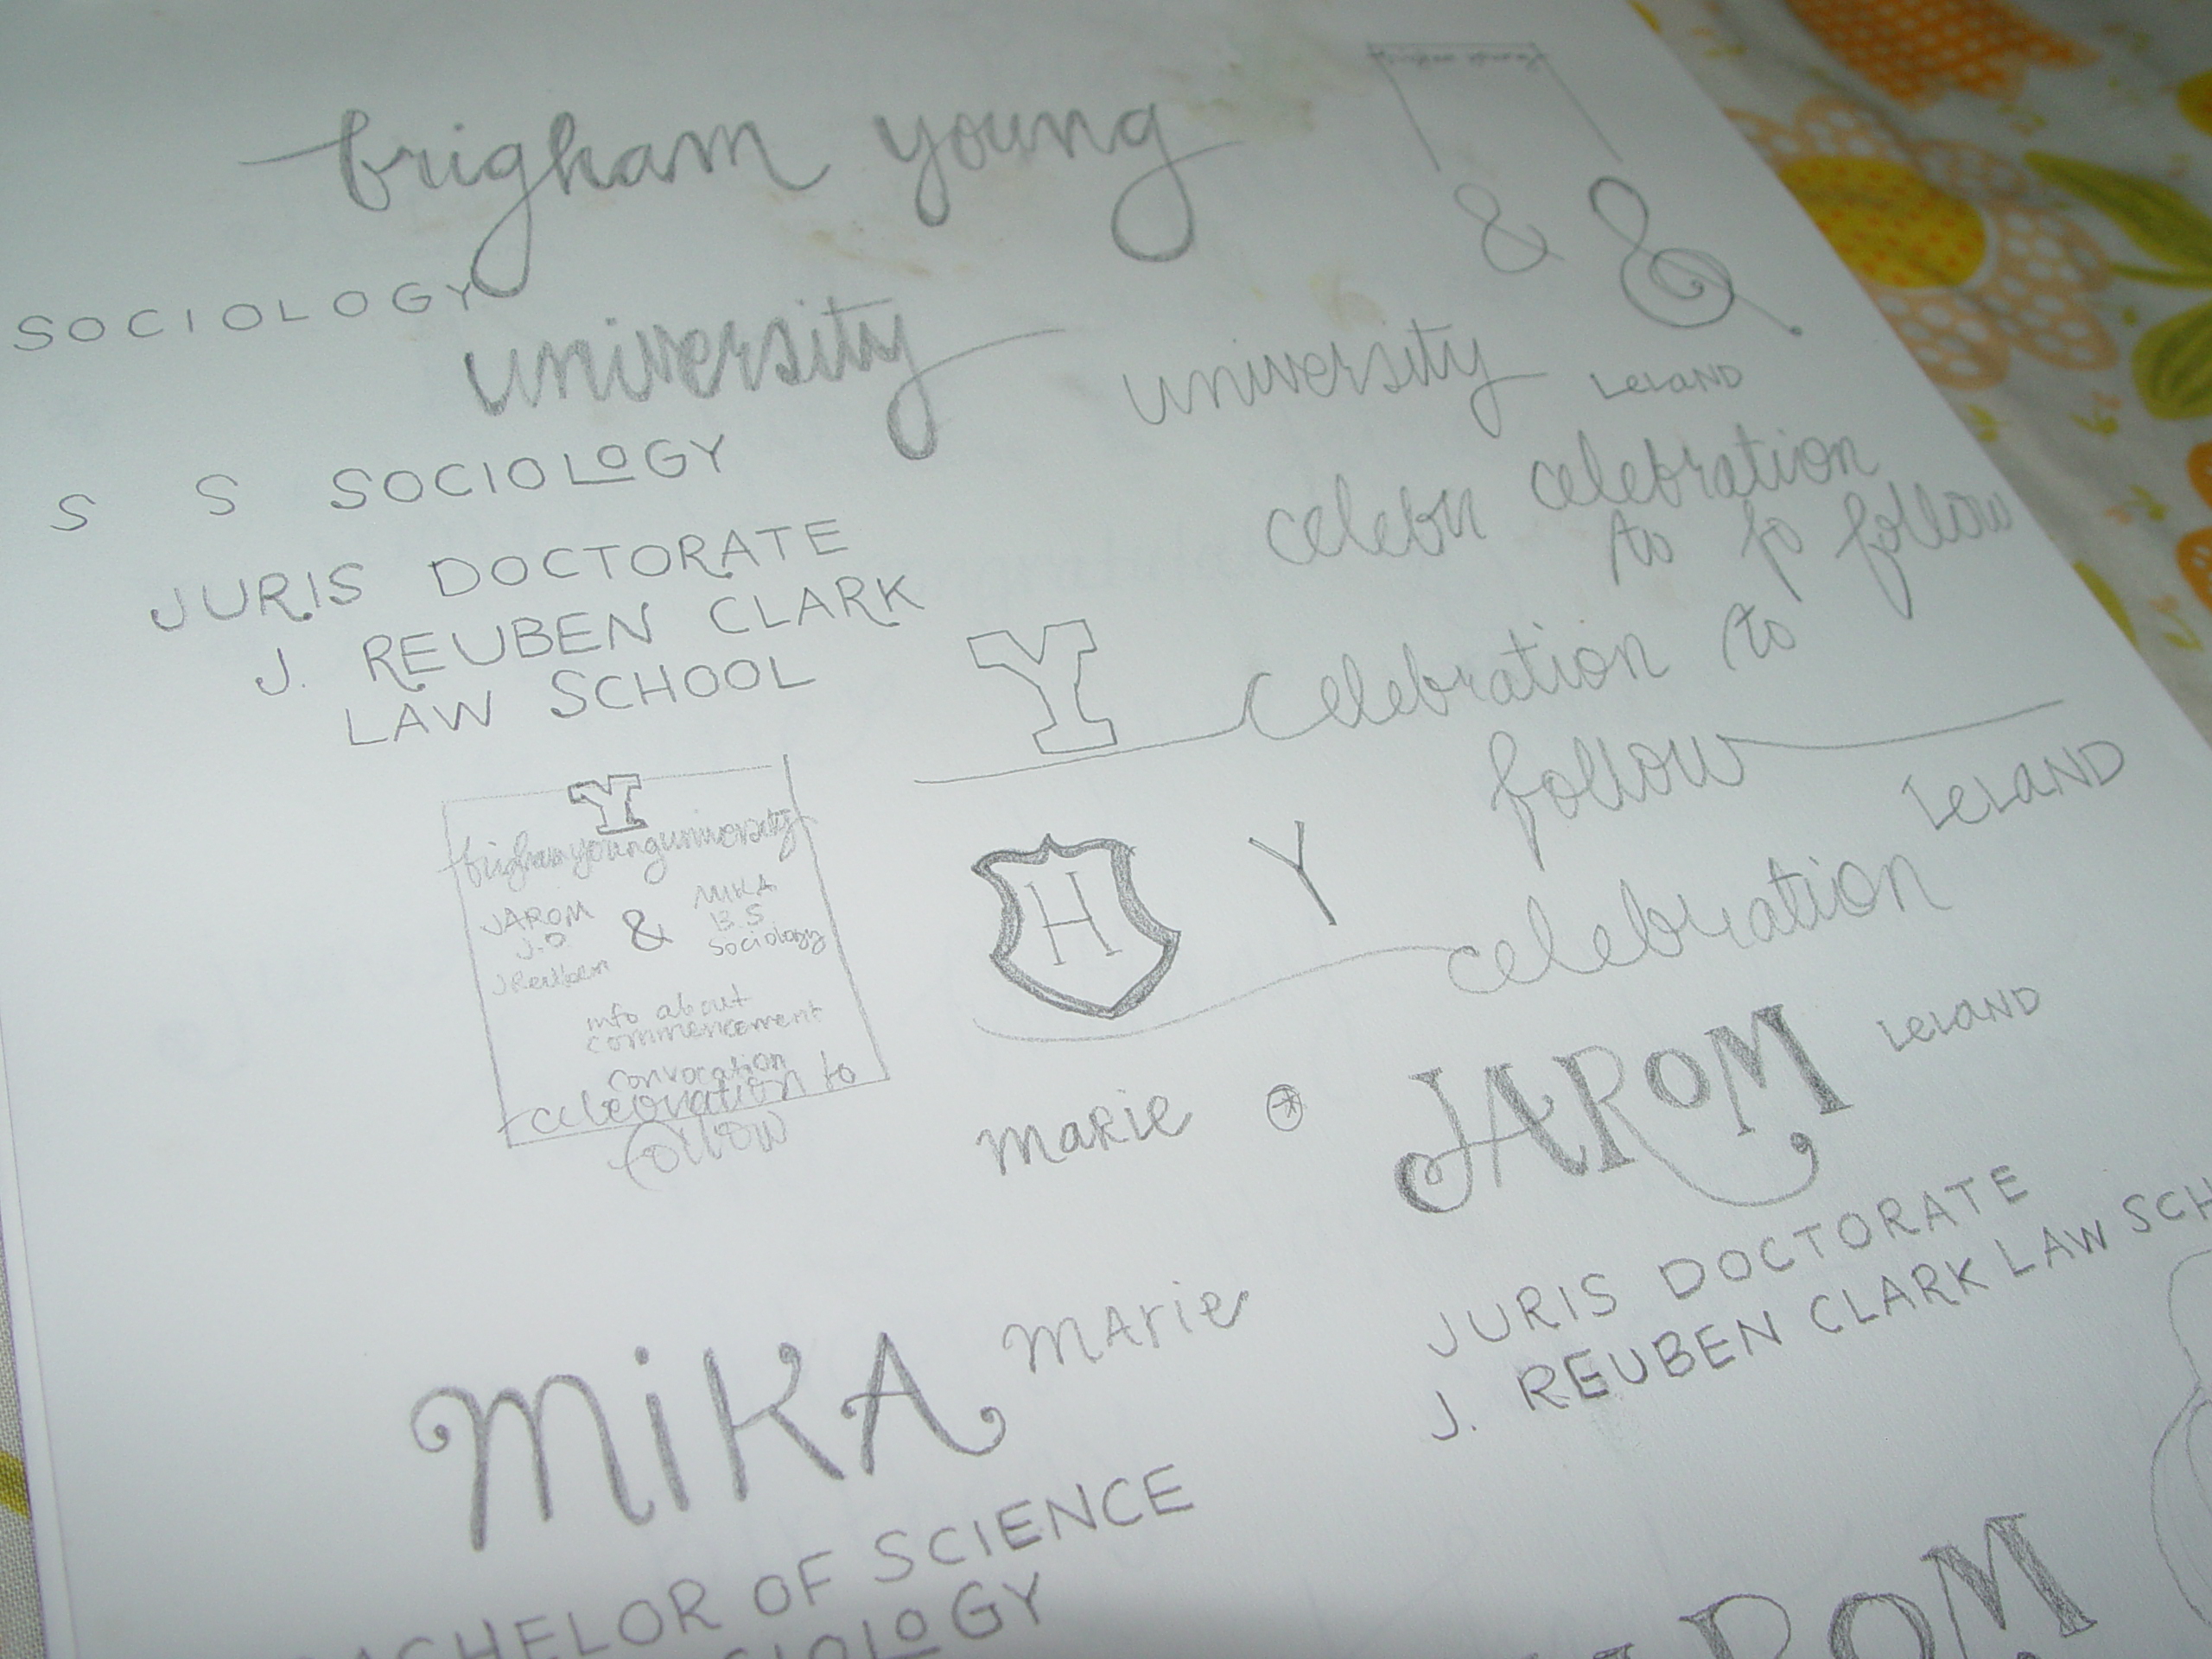 brigham young
& &
SOCIOLOGY
university
university
LELAND
S S SOCIOLOGY
celebr celebration
to fo follow
JURIS DOCTORATE
J. REUBEN CLARK
LAW SCHOOL
Y
celebration to
follow
LELAND
Y
brigham young university
JAROM & MIKA
J.D B.S
J Reuben Sociology
info about
commencement
convocation
celebration to
follow
H
Y
celebration
marie
JAROM
LELAND
JURIS DOCTORATE
J. REUBEN CLARK LAW SCH
MiKA
marie
BACHELOR OF SCIENCE
CIOLOGY
AROM